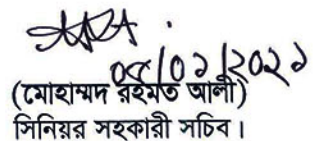 ০৫/০১/২০২১
(মোহাম্মদ রহমত আলী)
সিনিয়র সহকারী সচিব।